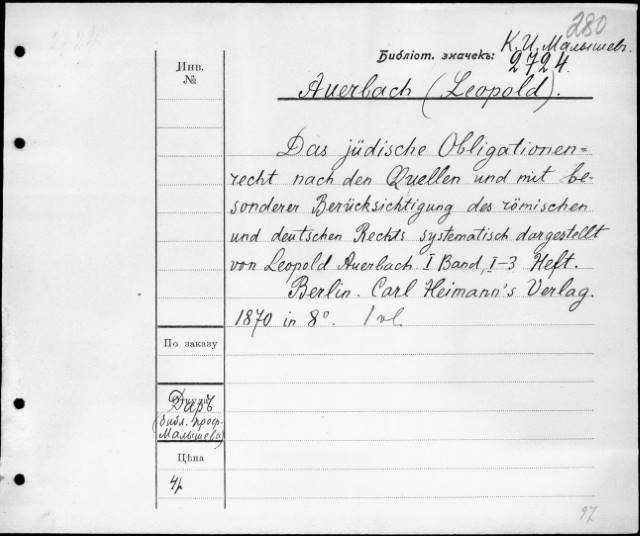 280
К. И. Малышев.
Библiот. значекъ: 2724.
Инв.
№
Auerbach (Leopold).
Das jüdische Obligationen=
recht nach den Quellen und mit be-
sonderer Berücksichtigung des römischen
und deutschen Rechts systematisch dargestellt
von Leopold Auerbach. I Band, I-3 Heft.
Berlin. Carl Heimann's Verlag.
1870 in 8°. 1 vol.
По заказу
Даръ
(библ. проф.
Малышева)
Цѣна
4р
97